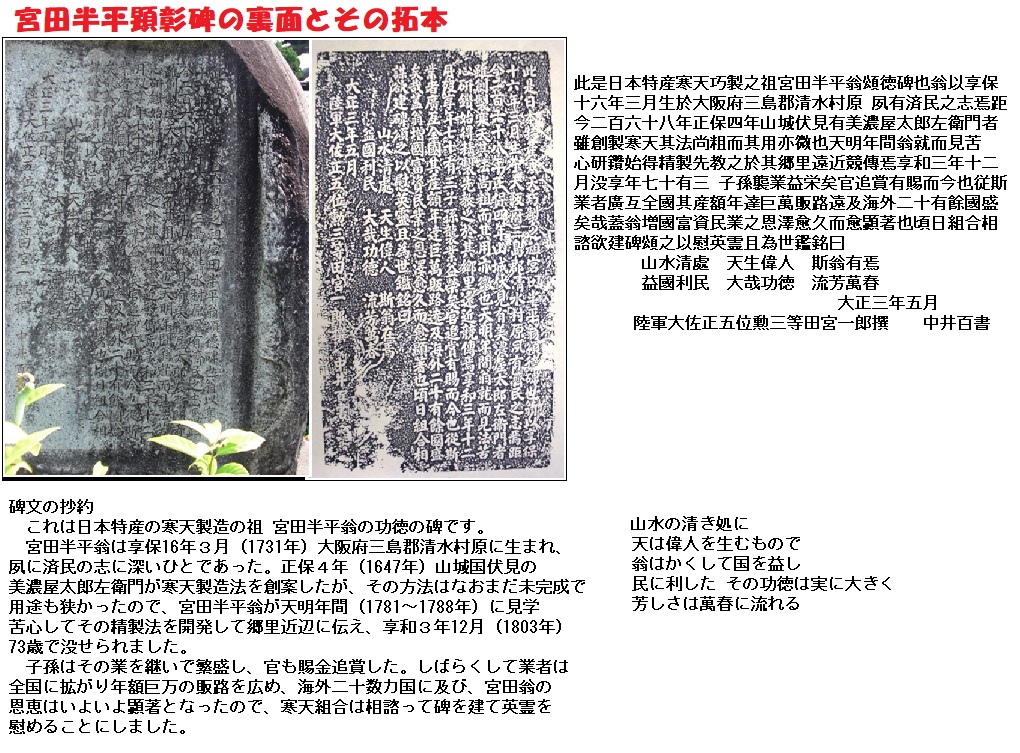 宮田半平顕彰碑の裏面とその拓本
此是日本特産寒天巧製之祖宮田半平翁頌徳碑也翁以享保
十六年三月生於大阪府三島郡清水村原 夙有済民之志焉距
今二百六十八年正保四年山城伏見有美濃屋太郎左衛門者
雖創製寒天其法尚粗而其用亦微也天明年間翁就而見苦
心研鑽始得精製先教之於其郷里遠近競傳焉享和三年十二
月没享年七十有三 子孫襲業益栄矣官追賞有賜而今也従斯
業者廣互全國其産額年達巨萬販路遠及海外二十有餘國盛
矣哉蓋翁増國富資民業之恩澤愈久而愈顕著也頃日組合相
諮欲建碑頌之以慰英霊且為世鑑銘曰
山水清處 天生偉人 斯翁有焉
益國利民 大哉功徳 流芳萬春
大正三年五月
陸軍大佐正五位勲三等田宮一郎撰 中井百書
碑文の抄約
これは日本特産の寒天製造の祖 宮田半平翁の功徳の碑です。
宮田半平翁は享保16年3月（1731年）大阪府三島郡清水村原に生まれ、
夙に済民の志に深いひとであった。正保4年（1647年）山城国伏見の
美濃屋太郎左衛門が寒天製造法を創案したが、その方法はなおまだ未完成で
用途も狭かったので、宮田半平翁が天明年間（1781～1788年）に見学
苦心してその精製法を開発して郷里近辺に伝え、享和3年12月（1803年）
73歳で没せられました。
子孫はその業を継いで繁盛し、官も賜金追賞した。しばらくして業者は
全国に拡がり年額巨万の販路を広め、海外二十数カ国に及び、宮田翁の
恩恵はいよいよ顕著となったので、寒天組合は相諮って碑を建て英霊を
慰めることにしました。
山水の清き処に
天は偉人を生むもので
翁はかくして国を益し
民に利した その功徳は実に大きく
芳しさは萬春に流れる